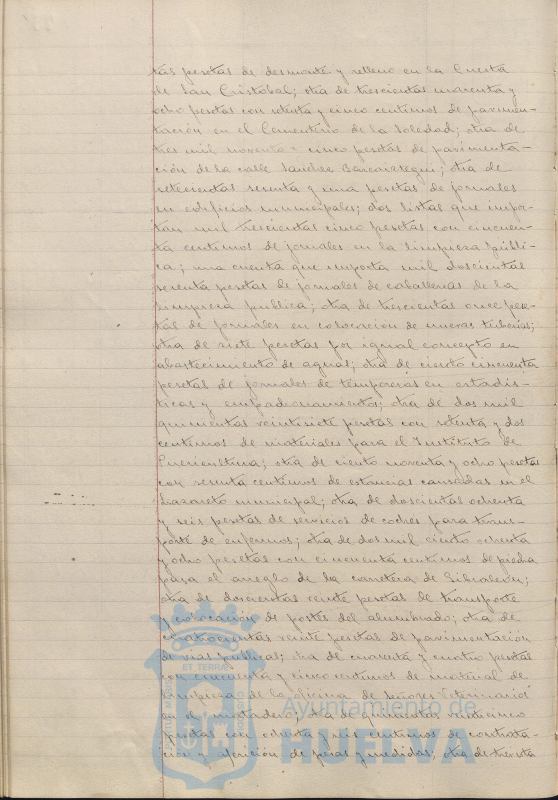 tas pesetas de desmonte y relleno en la Cuesta
de San Cristobal; otra de trescientas noventa y
ocho pesetas con setenta y cinco centimos de pavimen-
tación en el Cementerio de la Soledad; otra de
tres mil noventa cinco pesetas de pavimenta-
ción de la calle Sanchez Barcaiztegui; otra de
setecientas sesenta y una pesetas de jornales
en edificios municipales; dos listas que impor-
tan mil trescientas cinco pesetas con cincuen-
ta centimos de jornales en la limpieza públi-
ca; una cuenta que importa mil doscientas
pesetas de jornales de caballerias de la
limpieza publica; otra de trescientas once pese-
tas de jornales en colocación de nuevas tuberias;
otra de siete pesetas por igual concepto en
abastecimiento de aguas; otra de ciento cincuenta
pesetas de jornales de temporeros en estadis-
ticas y empadronamientos; otra de dos mil
quinientas veintisiete pesetas con setenta y dos
centimos de materiales para el Instituto de
Puericultura; otra de ciento noventa y ocho pesetas
con sesenta centimos de estancias causadas en el
Lazareto municipal; otra de doscientas ochenta
y seis pesetas de servicios de coches para trans-
porte de enfermos; otra de dos mil ciento ochenta
y ocho pesetas con cincuenta centimos de piedra
para el arreglo de la carretera de Gibraleón;
otra de doscientas veinte pesetas de transporte
y colocación de postes del alumbrado; otra de
cuatrocientas veinte pesetas de pavimentación
de vias publicas; otra de cuarenta y cuatro pesetas
con cincuenta y cinco centimos de material de
limpieza de la oficina de señores Veterinarios
en el matadero; otra de quinientas veinticinco
pesetas con ochenta y seis centimos de contrata-
ción y aferición de pesas y medidas; otra de treinta
ET TERRA
Ayuntamiento de
HUELVA